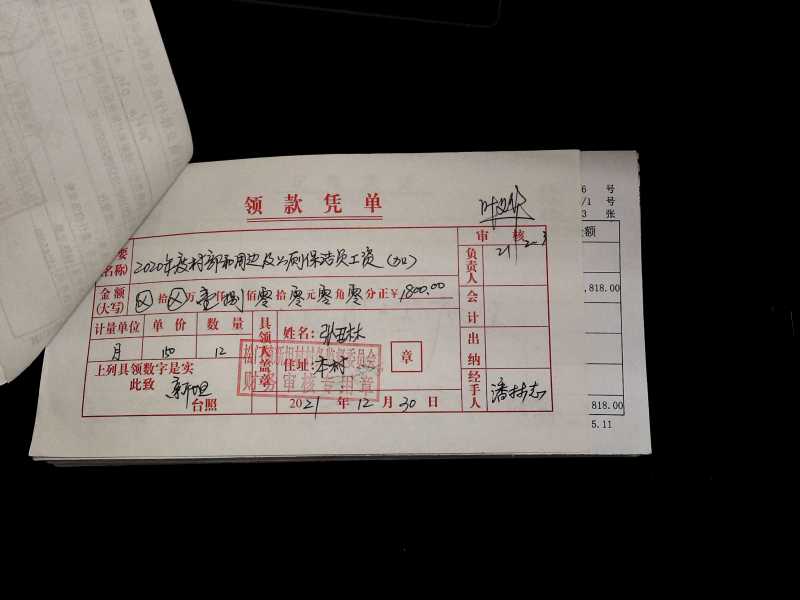 领款凭单
审核
要
(名称)
2020年度村部和周边及公厕保洁员工资
负责人
21 2-3
金额
(大写)
拾 万 壹仟捌佰零拾零元零角零分正￥1800.00
会计
计量单位 单价 数量
具领人盖章
姓名:
章
出纳
月 150 12
住址: 本村
上列具领数字是实
此致
新坦
台照
财务审核专用章
2021年12月30日
经手人
潘
6 号
/1 号
3 张
金额
,818.00
818.00
5.11